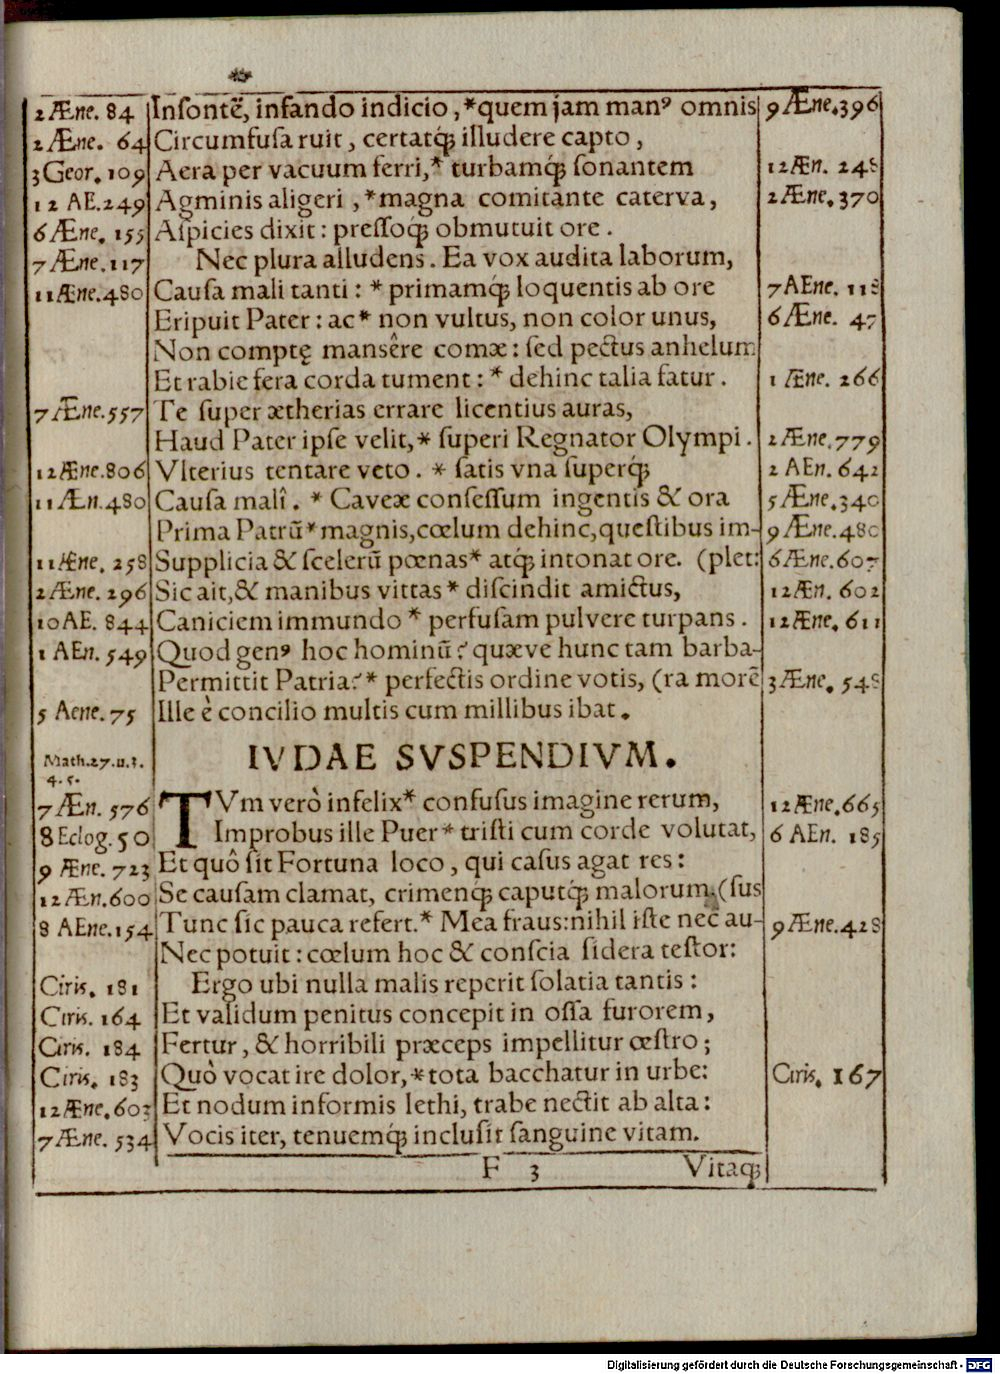 2 Æne. 84 Inſontē, infando indicio, *quem jam manꝰ omnis 9 Æne. 396
2 Æne. 64 Circumfuſa ruit, certatq́; illudere capto,
3 Geor. 109 Aera per vacuum ferri,* turbamq́; ſonantem 12 Æn. 248
12 AE. 249 Agminis aligeri, *magna comitante caterva, 2 Æne. 370
6 Æne. 155 Aſpicies dixit: preſſoq́; obmutuit ore.
7 Æne. 117 Nec plura alludens. Ea vox audita laborum,
11 Æne. 480 Cauſa mali tanti: * primamq́; loquentis ab ore 7 AEne. 118
Eripuit Pater: ac* non vultus, non color unus, 6 Æne. 47
Non comptę mansêre comæ: ſed pectus anhelum
Et rabie fera corda tument: * dehinc talia fatur. 1 Æne. 266
7 Æne. 557 Te ſuper ætherias errare licentius auras,
Haud Pater ipſe velit,* ſuperi Regnator Olympi. 2 Æne. 779
12 Æne. 806 Vlterius tentare veto. * ſatis vna ſuperq́; 2 AEn. 642
11 Æn. 480 Cauſa malî. * Caveæ conſeſſum ingentis & ora 5 Æne. 340
Prima Patrū* magnis, cœlum dehinc, queſtibus im- 9 Æne. 480
11 Æne. 258 Supplicia & ſcelerū pœnas* atq́; intonat ore. (plet: 6 Æne. 607
2 Æne. 296 Sic ait, & manibus vittas* diſcindit amictus, 12 Æn. 602
10 AE. 844 Caniciem immundo * perfuſam pulvere turpans. 12 Æne. 611
1 AEn. 549 Quod genꝰ hoc hominū? quæve hunc tam barba-
Permittit Patria?* perfectis ordine votis, (ra morē 3 Æne. 548
5 Aene. 75 Ille è concilio multis cum millibus ibat.
IVDAE SVSPENDIVM.
Math. 27. u. 3.
4. 5.
7 Æn. 576 TVm verò infelix* confuſus imagine rerum, 12 Æne. 665
8 Eclog. 50 Improbus ille Puer* triſti cum corde volutat, 6 AEn. 185
9 Æne. 723 Et quô ſit Fortuna loco, qui caſus agat res:
12 Æn. 600 Se cauſam clamat, crimenq́; caputq́; malorum. (ſus
8 AEne. 154 Tunc ſic pauca refert.* Mea fraus: nihil iſte nec au- 9 Æne. 428
Nec potuit: cœlum hoc & conſcia ſidera teſtor:
Ciris. 181 Ergo ubi nulla malis reperit ſolatia tantis:
Ciris. 164 Et validum penitus concepit in oſſa furorem,
Ciris. 184 Fertur, & horribili præceps impellitur œſtro;
Ciris. 183 Quò vocat ire dolor,* tota bacchatur in urbe: Ciris. 167
12 Æne. 603 Et nodum informis lethi, trabe nectit ab alta:
7 Æne. 534 Vocis iter, tenuemq́; incluſit ſanguine vitam.
F 3 Vitaq́;
Digitalisierung gefördert durch die Deutsche Forschungsgemeinschaft - DFG